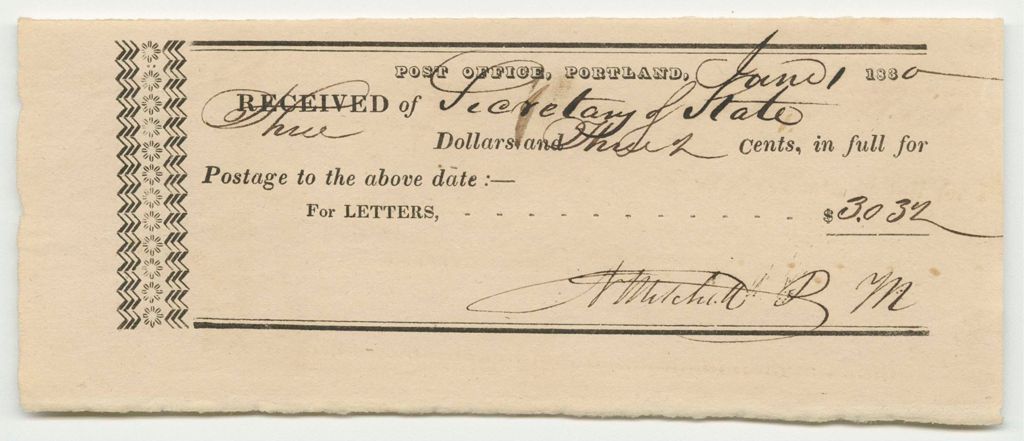 POST OFFICE, PORTLAND, June 1 1830
RECEIVED of Secretary of State
Three Dollars and Three ½ Cents, in full for
Postage to the above date :—
For LETTERS, - - - - - - - - - - - - - $3.03½
N Mitchell P M